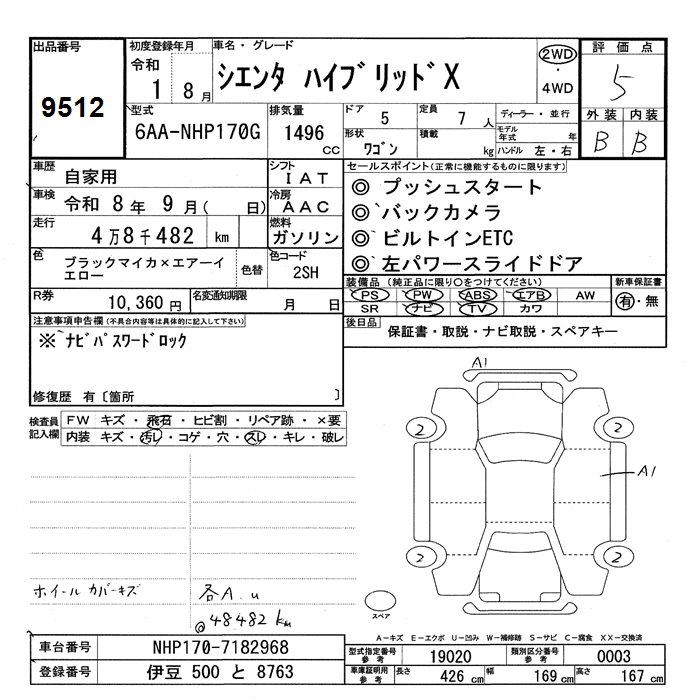 出品番号
9512
初度登録年月
令和
1 8月
車名・グレード
シエンタ ハイブリッドX
2WD
・
4WD
評価点
5
外装 内装
B B
型式
6AA-NHP170G
排気量
1496
cc
ドア
5
定員
7 人
ディーラー・並行
形状
ワゴン
積載
kg
モデル年式 年
ハンドル 左・右
車歴
自家用
シフト
IAT
車検
令和 8年 9月( 日)
冷房
AAC
走行
4万8千482 km
燃料
ガソリン
色
ブラックマイカ×エアーイエロー
色替
色コード
2SH
R券
10,360円
名変通知期限
月 日
セールスポイント(正常に機能するものに限ります)
◎ プッシュスタート
◎ バックカメラ
◎ ビルトインETC
◎ 左パワースライドドア
装備品(純正品に限り○をつけてください)
PS PW ABS エアB AW
SR ナビ TV カワ
新車保証書
有・無
後日品
保証書・取説・ナビ取説・スペアキー
注意事項申告欄(不具合内容等は具体的に記入して下さい)
※ナビパスワードロック
修復歴 有〔箇所 〕
検査員記入欄
FW キズ・飛石・ヒビ割・リペア跡・×要
内装 キズ・汚レ・コゲ・穴・スレ・キレ・破レ
A1
2 2
A1
2 2
スペア
ホイールカバーキズ
各A.u
@48482km
A-キズ E-エクボ U-凹み W-補修跡 S-サビ C-腐食 XX-交換済
車台番号
NHP170-7182968
登録番号
伊豆 500 と 8763
型式指定番号
参考
19020
類別区分番号
参考
0003
車庫証明用
参考
長さ 426 cm
幅 169 cm
高さ 167 cm